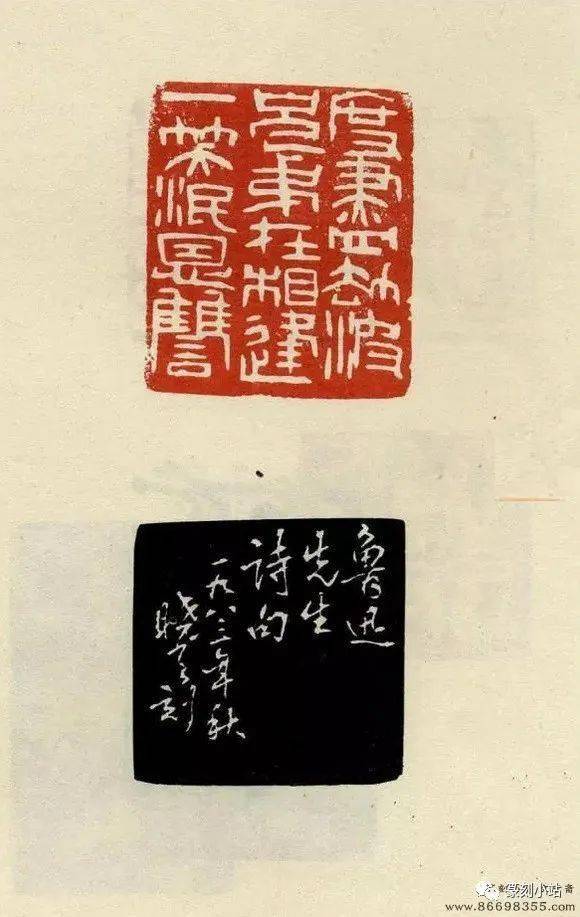 度盡劫波
兄弟在相逢
一笑泯恩讎
魯迅
先生
詩句
一九八三年秋
刻
篆刻小站
www.86698355.com